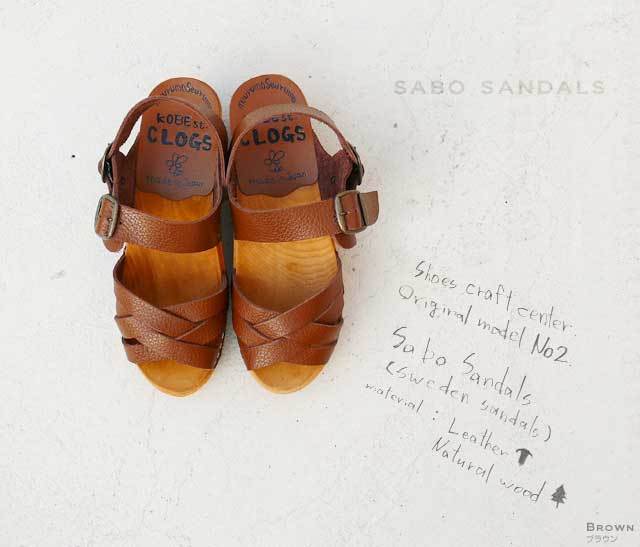 SABO SANDALS
KOBE st.
CLOGS
made in Japan
KOBE st.
CLOGS
made in Japan
Shoes craft center
Original model No2.
Sabo Sandals
(Sweden sandals)
material : Leather
Natural wood
BROWN
ブラウン